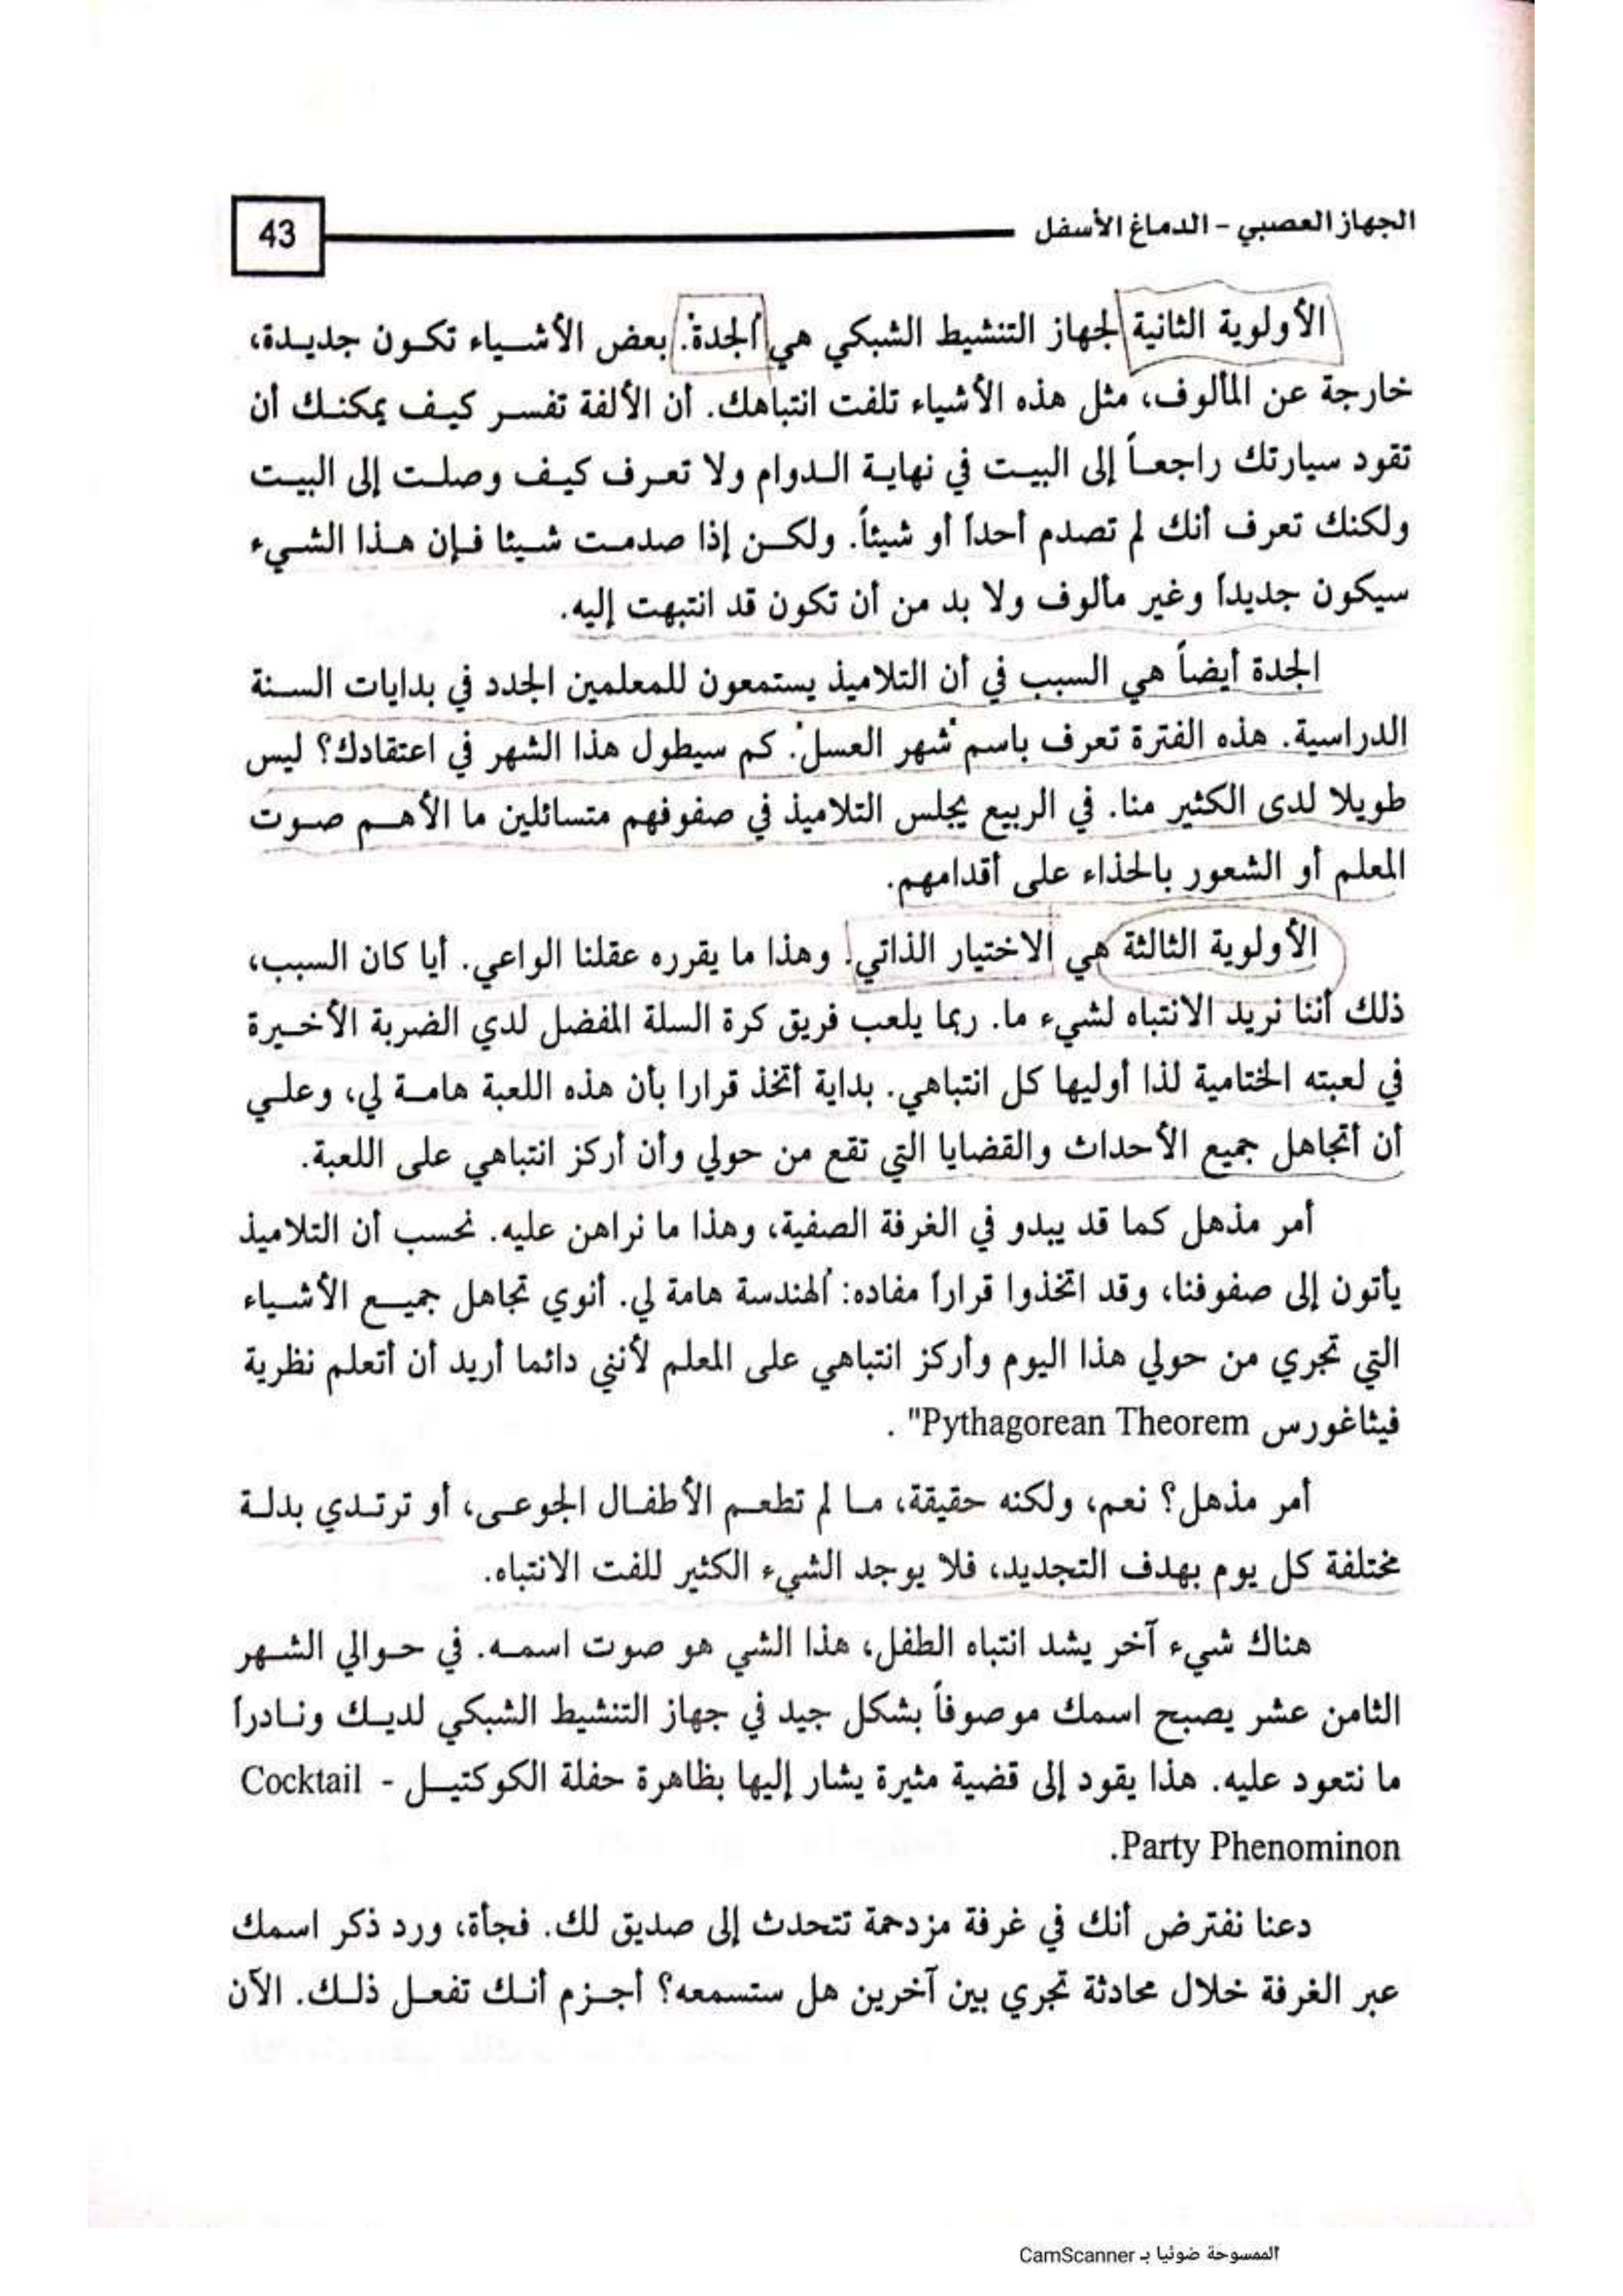 الجهاز العصبي - الدماغ الأسفل
43
الأولوية الثانية لجهاز التنشيط الشبكي هي "الجدة". بعض الأشياء تكون جديدة،
خارجة عن المألوف، مثل هذه الأشياء تلفت انتباهك. أن الألفة تفسر كيف يمكنك أن
تقود سيارتك راجعاً إلى البيت في نهاية الدوام ولا تعرف كيف وصلت إلى البيت
ولكنك تعرف أنك لم تصدم أحداً أو شيئاً. ولكن إذا صدمت شيئا فإن هذا الشيء
سيكون جديداً وغير مألوف ولا بد من أن تكون قد انتبهت إليه.
الجدة أيضاً هي السبب في أن التلاميذ يستمعون للمعلمين الجدد في بدايات السنة
الدراسية. هذه الفترة تعرف باسم "شهر العسل". كم سيطول هذا الشهر في اعتقادك؟ ليس
طويلا لدى الكثير منا. في الربيع يجلس التلاميذ في صفوفهم متسائلين ما الأهم صوت
المعلم أو الشعور بالحذاء على أقدامهم.
الأولوية الثالثة هي "الاختيار الذاتي". وهذا ما يقرره عقلنا الواعي. أيا كان السبب،
ذلك أننا نريد الانتباه لشيء ما. ربما يلعب فريق كرة السلة المفضل لدي الضربة الأخيرة
في لعبته الختامية لذا أوليها كل انتباهي. بداية أتخذ قرارا بأن هذه اللعبة هامة لي، وعلي
أن أتجاهل جميع الأحداث والقضايا التي تقع من حولي وأن أركز انتباهي على اللعبة.
أمر مذهل كما قد يبدو في الغرفة الصفية، وهذا ما نراهن عليه. نحسب أن التلاميذ
يأتون إلى صفوفنا، وقد اتخذوا قراراً مفاده: "الهندسة هامة لي. أنوي تجاهل جميع الأشياء
التي تجري من حولي هذا اليوم وأركز انتباهي على المعلم لأنني دائما أريد أن أتعلم نظرية
فيثاغورس Pythagorean Theorem" .
أمر مذهل؟ نعم، ولكنه حقيقة، ما لم تطعم الأطفال الجوعى، أو ترتدي بدلة
مختلفة كل يوم بهدف التجديد، فلا يوجد الشيء الكثير للفت الانتباه.
هناك شيء آخر يشد انتباه الطفل، هذا الشي هو صوت اسمه. في حوالي الشهر
الثامن عشر يصبح اسمك موصوفاً بشكل جيد في جهاز التنشيط الشبكي لديك ونادراً
ما نتعود عليه. هذا يقود إلى قضية مثيرة يشار إليها بظاهرة حفلة الكوكتيل - Cocktail
Party Phenominon.
دعنا نفترض أنك في غرفة مزدحمة تتحدث إلى صديق لك. فجأة، ورد ذكر اسمك
عبر الغرفة خلال محادثة تجري بين آخرين هل ستسمعه؟ أجزم أنك تفعل ذلك. الآن
الممسوحة ضوئيا بـ CamScanner